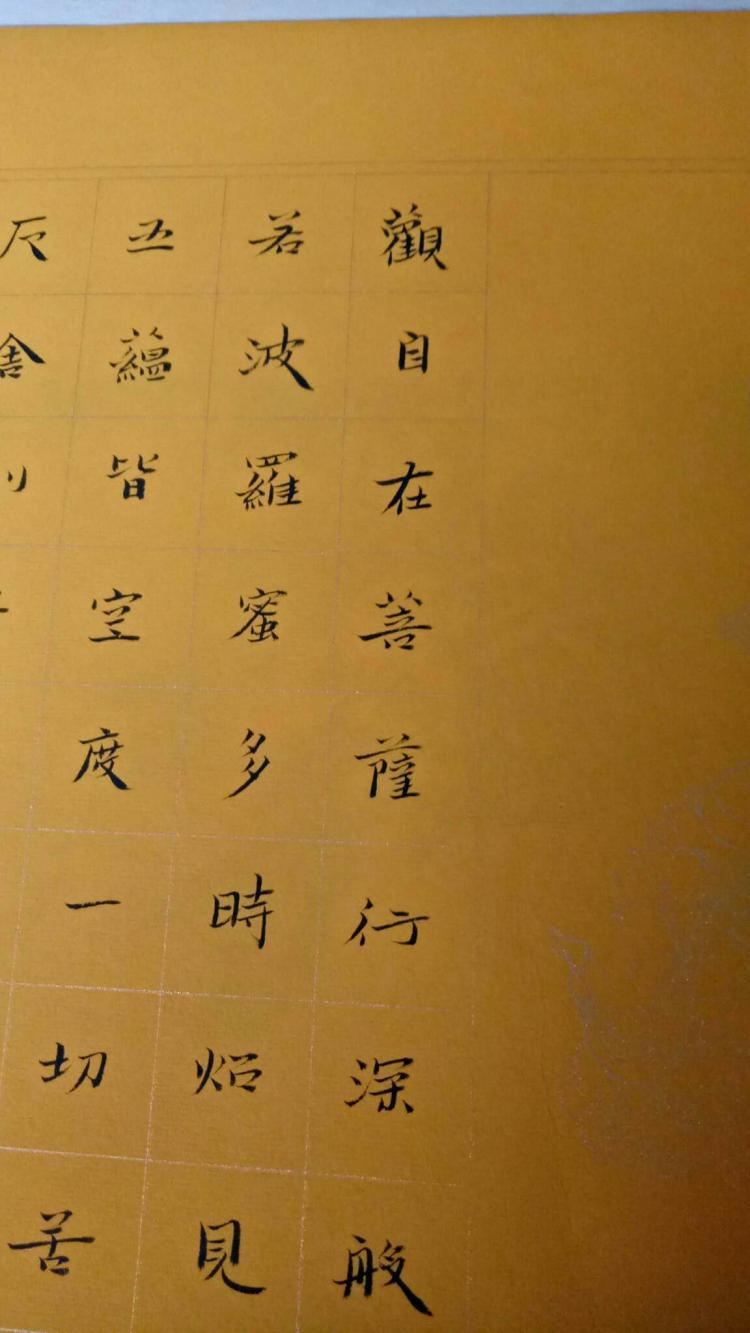 觀自在菩薩行深般
若波羅蜜多時炤見
五蘊皆空度一切苦
厄舍